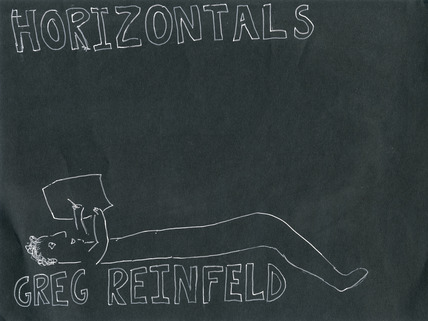 HORIZONTALS
GREG REINFELD